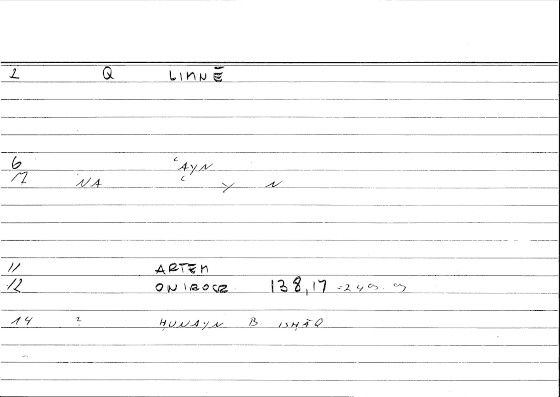 2 Q LINNĒ
6 ʿAYN
M NA ʿ Y N
11 ARTEM
12 ONIROCR 138,17 =249.
14 ? ḤUNAYN B ISḤĀQ